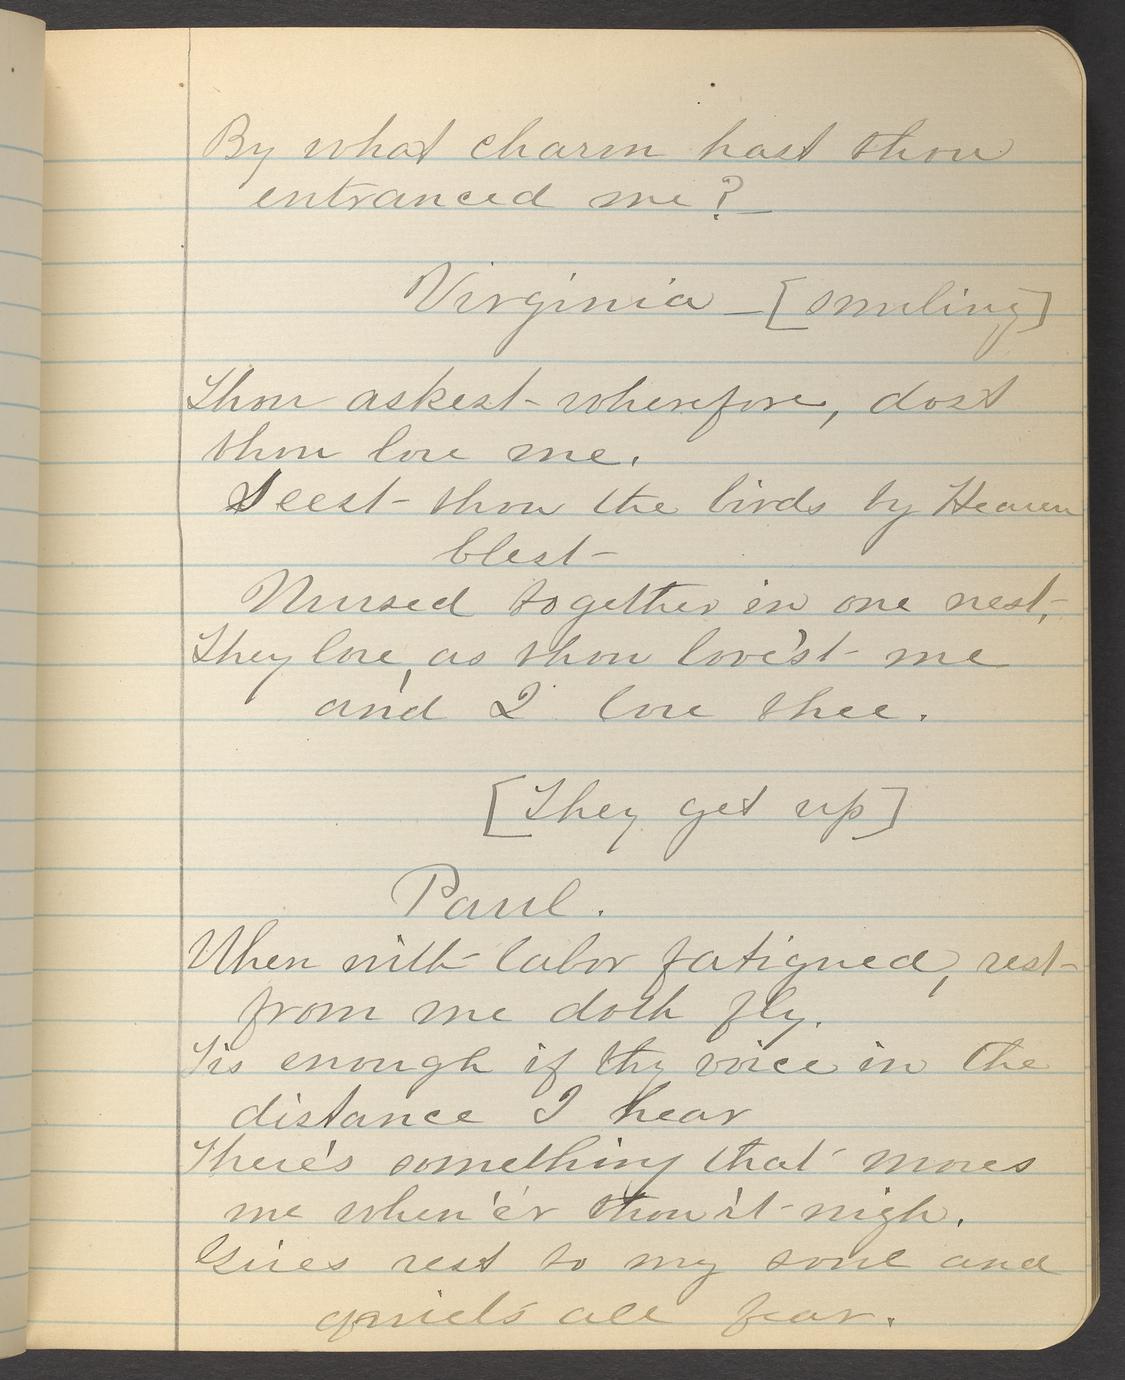 By what charm hast thou
entranced me? —
Virginia — [smiling]
Thou askest - wherefore, dost
thou love me.
Seest - thou the birds by Heaven
blest -
Nursed together in one nest, -
They love, as thou lovést me
and I love thee.
[They get up]
Paul.
When with labor fatigued, rest
from me doth fly.
'Tis enough if thy voice in the
distance I hear
There's something that moves
me when'er thou'rt nigh.
Gives rest to my soul and
quiets all fear.